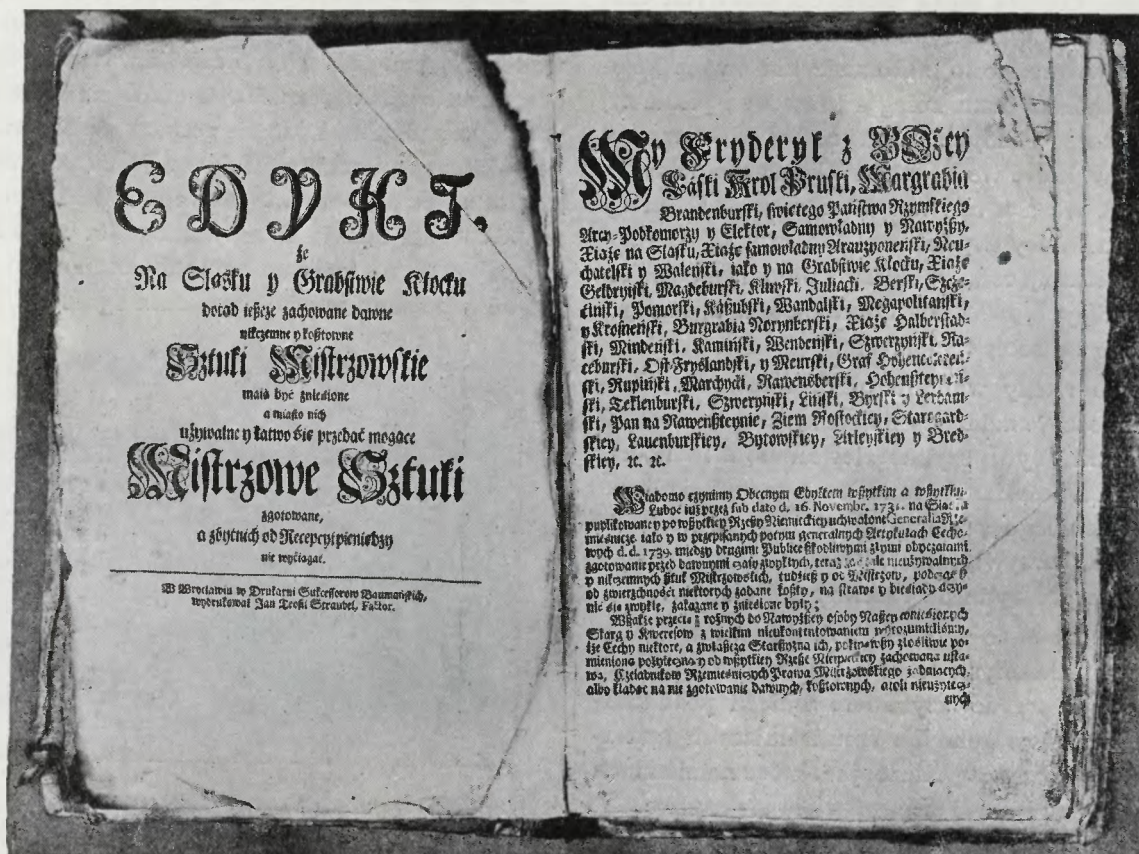 EDYKT.
że
Na Sląsku y Grabstwie Kłocku
dotąd ieszcze zachowane dawne
nikczemne y kosztowne
Sztuki Mistrzowskie
maią być zniesione
a miasto nich
używalne y łatwo się przedać mogące
Mistrzowe Sztuki
zgotowane,
a zbytnich od Recepcyi pieniędzy
nie wyciągać.
W Wrocławiu w Drukarni Sukcessorow Baumańskich,
wydrukował Jan Teofil Straubel, Faktor.
My Fryderyk z BOżey
Łaski Krol Pruski, Margrabia
Brandenburski, swiętego Państwa Rzymskiego
Arcy-Podkomorzy y Elektor, Samowładny y Naywyższy,
Xiąże na Sląsku, Xiąże samowładny Arauzyoneński, Neu-
chatelski y Waleński, iako y na Grabstwie Kłocku, Xiąże
Geldryiski, Magdeburski, Kliwski, Juliacki, Berski, Szcze-
ciński, Pomorski, Kaszubski, Wandalski, Megapolitański,
y Krosneński, Burgrabia Norynberski, Xiąże Halberstad-
ski, Mindeński, Kamiński, Wendeński, Szweryński, Ra-
ceburski, Ost-Fryslandski, y Meurski, Graf
ski, Rupiński, Marchycki, Rawensberski,
ski, Teklenburski, Szweryński, Liński, Byrski y Lerdam-
ski, Pan na Rawenszteynie, Ziem Rostockiey, Starogard-
skiey, Lauenburskiey, Bytowskiey, Arleyskiey y Bred-
skiey, 2c. 2c.
Wiadomo czynimy Obecnym Edyktem wszytkim a wszytkim.
Luboć iuż przez sub dato d. 16. Novembr. na
publikowane y po wszytkiey Rzeszy Niemieckiey uchwalone Generalia Rze-
mieśnicze iako y w przepisanych potym generalnych Artykułach Cecho-
wych d. d. 1739. między drugimi Publice szkodliwymi złymi obyczaiami,
zgotowanie przed dawnymi czasy zwykłych, teraz nieużywalnych
y nikczemnych sztuk Mistrzowskich, tudzież y od Mistrzow,
od zwierzchności niektorych zadane koszty, na strawę y biesiady czy-
nić się zwykłe, zakazane y zniesione były;
Wszakże przecię z rożnych do Naywyższey osoby Naszey wniesionych
Skarg y Kweresow z wielkim nieukontentowaniem wyrozumielismy,
iże Cechy niektore, a zwłaszcza Starszyzna ich, złośliwie po-
mieniona pożyteczną y od wszytkiey Rzesze Niemieckiey zachowaną usta-
wę, Czeladnikow Rzemieśniczych Prawa Mistrzowskiego żądaiących,
albo kładąc na nie zgotowanie dawnych, kosztownych, atoli nieużytecz-
nych